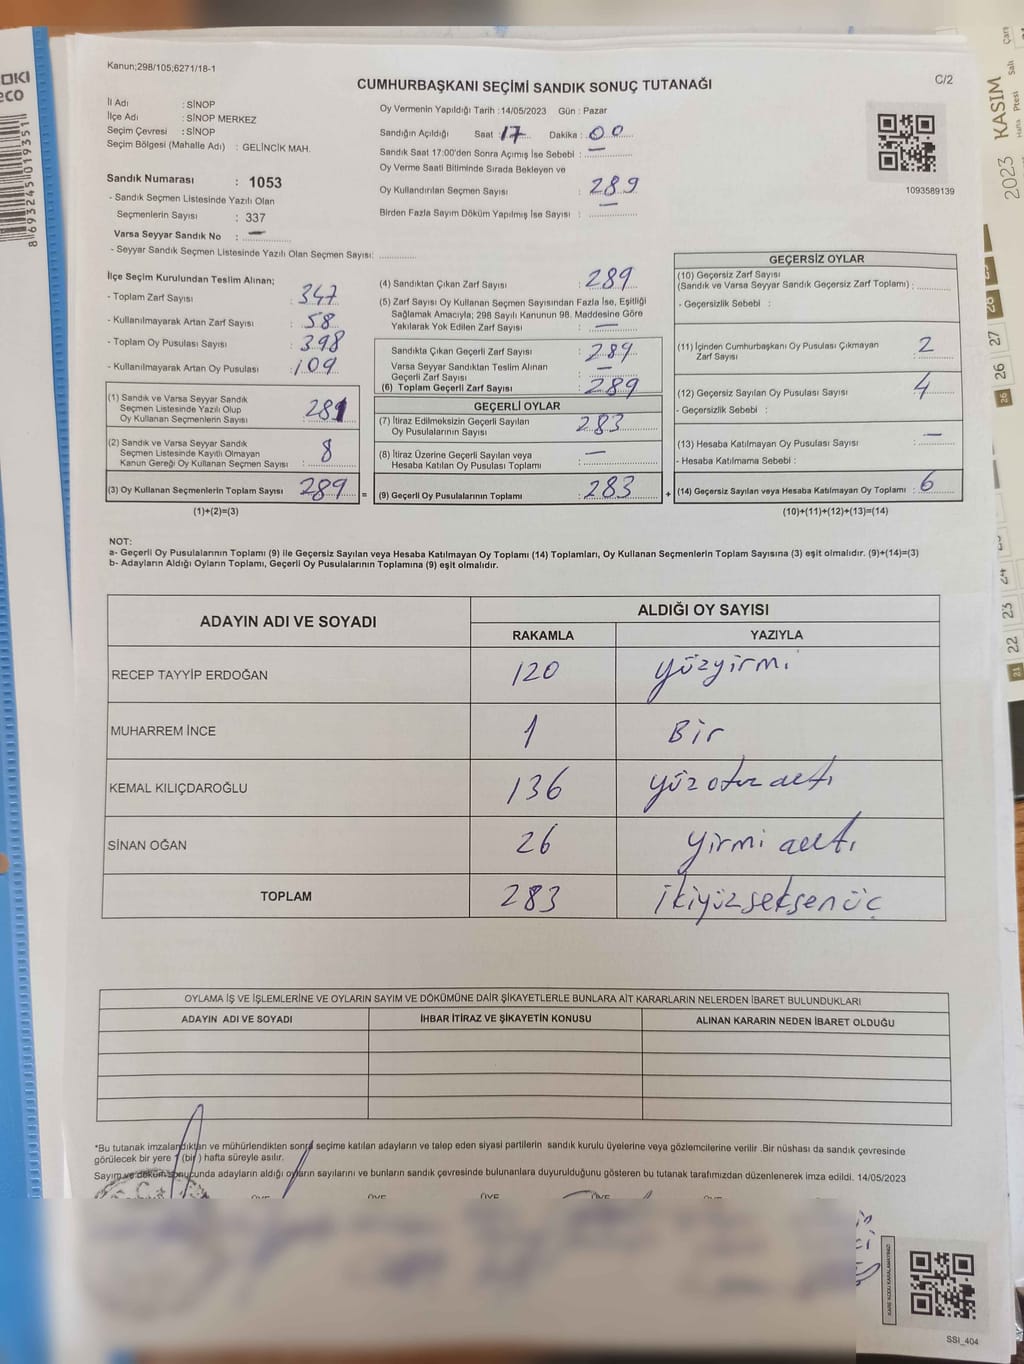 Kanun;298/105;6271/18-1
CUMHURBAŞKANI SEÇİMİ SANDIK SONUÇ TUTANAĞI
C/2
İl Adı : SİNOP
İlçe Adı : SİNOP MERKEZ
Seçim Çevresi : SİNOP
Seçim Bölgesi (Mahalle Adı) : GELİNCİK MAH.
Sandık Numarası : 1053
- Sandık Seçmen Listesinde Yazılı Olan
Seçmenlerin Sayısı : 337
Varsa Seyyar Sandık No : —
- Seyyar Sandık Seçmen Listesinde Yazılı Olan Seçmen Sayısı:
Oy Vermenin Yapıldığı Tarih : 14/05/2023 Gün : Pazar
Sandığın Açıldığı Saat : 17 Dakika : 00
Sandık Saat 17:00'den Sonra Açımış İse Sebebi : —
Oy Verme Saati Bitiminde Sırada Bekleyen ve
Oy Kullandırılan Seçmen Sayısı : 289
Birden Fazla Sayım Döküm Yapılmış İse Sayısı : —
1093589139
İlçe Seçim Kurulundan Teslim Alınan;
- Toplam Zarf Sayısı : 347
- Kullanılmayarak Artan Zarf Sayısı : 58
- Toplam Oy Pusulası Sayısı : 398
- Kullanılmayarak Artan Oy Pusulası : 109
(1) Sandık ve Varsa Seyyar Sandık
Seçmen Listesinde Yazılı Olup
Oy Kullanan Seçmenlerin Sayısı : 281
(2) Sandık ve Varsa Seyyar Sandık
Seçmen Listesinde Kayıtlı Olmayan
Kanun Gereği Oy Kullanan Seçmen Sayısı : 8
(3) Oy Kullanan Seçmenlerin Toplam Sayısı 289 =
(1)+(2)=(3)
(4) Sandıktan Çıkan Zarf Sayısı : 289
(5) Zarf Sayısı Oy Kullanan Seçmen Sayısından Fazla İse, Eşitliği
Sağlamak Amacıyla; 298 Sayılı Kanunun 98. Maddesine Göre
Yakılarak Yok Edilen Zarf Sayısı : —
Sandıkta Çıkan Geçerli Zarf Sayısı : 289
Varsa Seyyar Sandıktan Teslim Alınan
Geçerli Zarf Sayısı : —
(6) Toplam Geçerli Zarf Sayısı : 289
GEÇERLİ OYLAR
(7) İtiraz Edilmeksizin Geçerli Sayılan
Oy Pusulalarının Sayısı : 283
(8) İtiraz Üzerine Geçerli Sayılan veya
Hesaba Katılan Oy Pusulası Toplamı : —
(9) Geçerli Oy Pusulalarının Toplamı : 283 +
GEÇERSİZ OYLAR
(10) Geçersiz Zarf Sayısı
(Sandık ve Varsa Seyyar Sandık Geçersiz Zarf Toplamı) :
- Geçersizlik Sebebi :
(11) İçinden Cumhurbaşkanı Oy Pusulası Çıkmayan
Zarf Sayısı : 2
(12) Geçersiz Sayılan Oy Pusulası Sayısı : 4
- Geçersizlik Sebebi :
(13) Hesaba Katılmayan Oy Pusulası Sayısı : —
- Hesaba Katılmama Sebebi :
(14) Geçersiz Sayılan veya Hesaba Katılmayan Oy Toplamı : 6
(10)+(11)+(12)+(13)=(14)
NOT:
a- Geçerli Oy Pusulalarının Toplamı (9) ile Geçersiz Sayılan veya Hesaba Katılmayan Oy Toplamı (14) Toplamları, Oy Kullanan Seçmenlerin Toplam Sayısına (3) eşit olmalıdır. (9)+(14)=(3)
b- Adayların Aldığı Oyların Toplamı, Geçerli Oy Pusulalarının Toplamına (9) eşit olmalıdır.
ADAYIN ADI VE SOYADI
ALDIĞI OY SAYISI
RAKAMLA YAZIYLA
RECEP TAYYİP ERDOĞAN 120 yüzyirmi
MUHARREM İNCE 1 Bir
KEMAL KILIÇDAROĞLU 136 yüz otuz altı
SİNAN OĞAN 26 yirmi altı
TOPLAM 283 ikiyüzseksenüç
OYLAMA İŞ VE İŞLEMLERİNE VE OYLARIN SAYIM VE DÖKÜMÜNE DAİR ŞİKAYETLERLE BUNLARA AİT KARARLARIN NELERDEN İBARET BULUNDUKLARI
ADAYIN ADI VE SOYADI İHBAR İTİRAZ VE ŞİKAYETİN KONUSU ALINAN KARARIN NEDEN İBARET OLDUĞU
*Bu tutanak imzalandıktan ve mühürlendikten sonra seçime katılan adayların ve talep eden siyasi partilerin sandık kurulu üyelerine veya gözlemcilerine verilir .Bir nüshası da sandık çevresinde
görülecek bir yere 1 (bir) hafta süreyle asılır.
Sayım ve döküm sonucunda adayların aldığı oyların sayılarını ve bunların sandık çevresinde bulunanlara duyurulduğunu gösteren bu tutanak tarafımızdan düzenlenerek imza edildi. 14/05/2023
ÜYE ÜYE ÜYE ÜYE
KARE KODU KARALAMAYINIZ!
SSI_404
8693245019351
2023 KASIM
Hafta Ptesi Salı Çarş
28 27 26
26
24
23
22
21